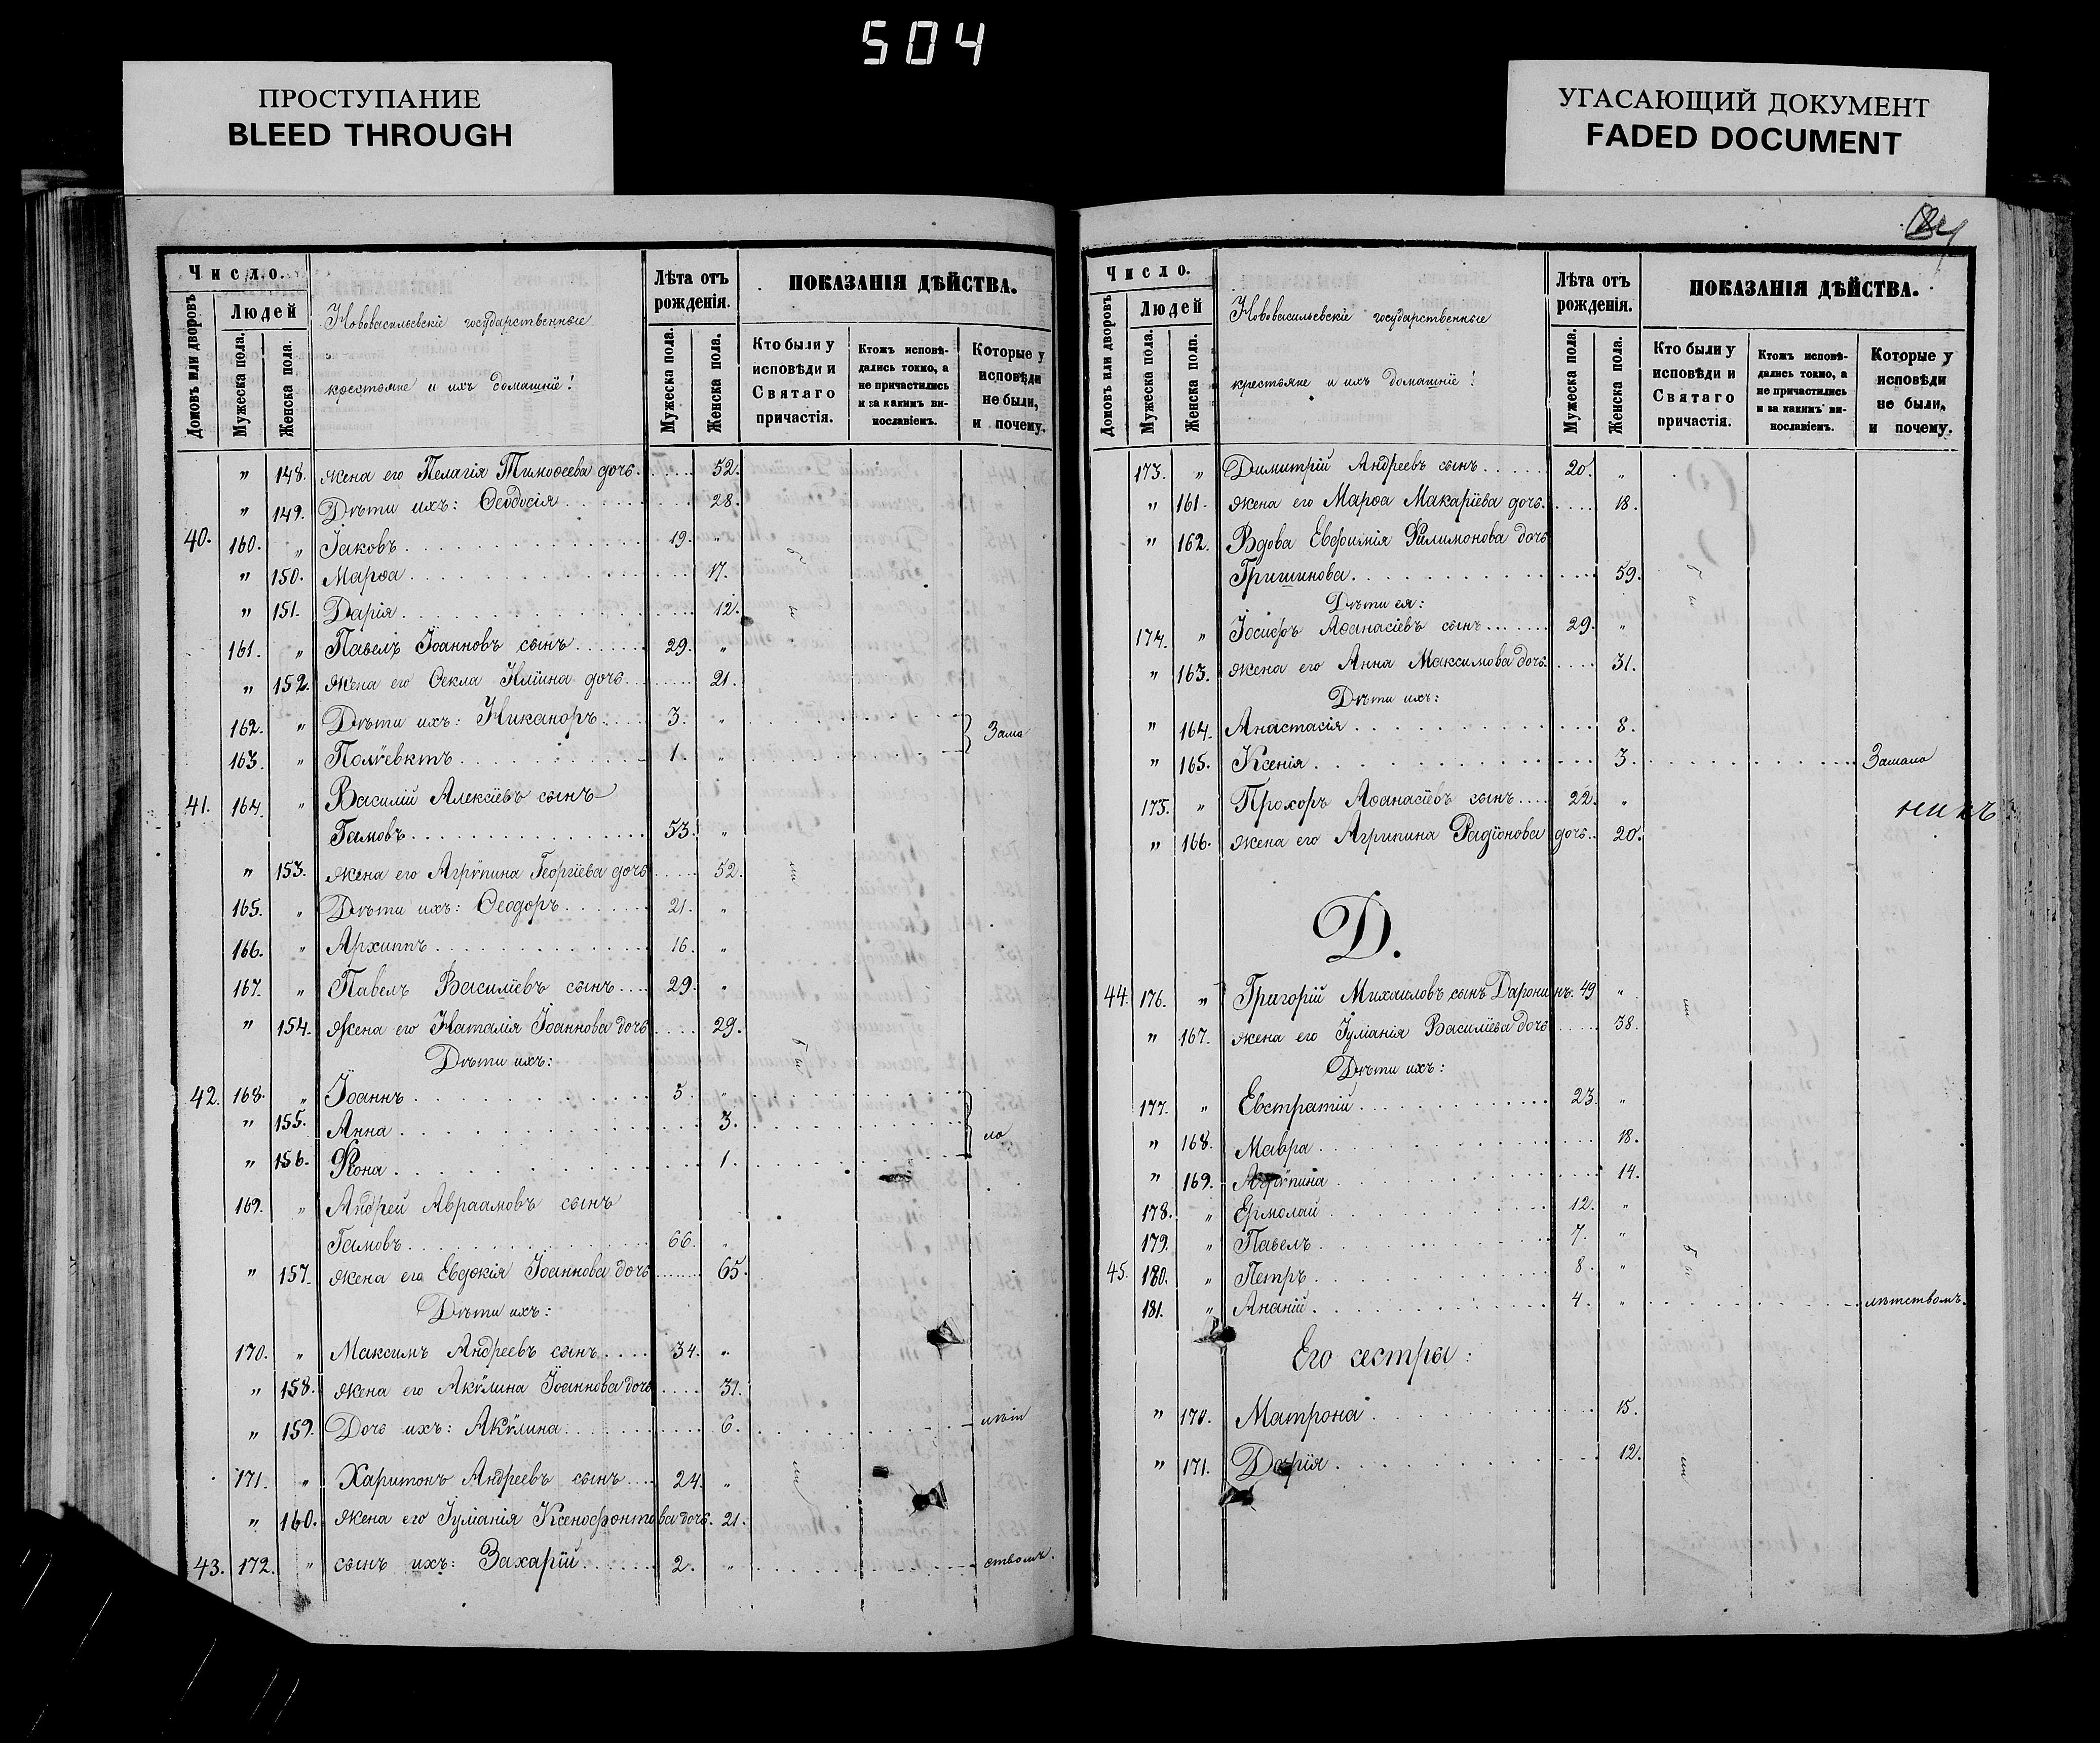 504
ПРОСТУПАНИЕ
BLEED THROUGH
УГАСАЮЩИЙ ДОКУМЕНТ
FADED DOCUMENT
Число.
Домовъ или дворовъ
Людей
Мужеска пола.
Женска пола.
Нововасильевскіе государственные
крестьяне и ихъ домашніе!
Лѣта отъ рожденія.
Мужеска пола.
Женска пола.
ПОКАЗАНІЯ ДѢЙСТВА.
Кто были у исповѣди и Святаго причастія.
Ктожъ исповѣ-дались токмо, а не причастились и за какимъ ви-нословіемъ.
Которые у исповѣди не были, и почему.
" 148. жена его Пелагія Тимоѳеева дочь. 52.
" 149. Дѣти ихъ: Ѳеодосія 28.
40. 160. " Іаковъ 19. "
" 150. Марѳа 17.
" 151. Дарія 12.
161. " Павелъ Іоанновъ сынъ 29. "
" 152. жена его Ѳекла Иліина дочь 21.
162. " Дѣти ихъ: Никаноръ 3. "
163. " Полѵевктъ 1. " Зама
41. 164. " Василій Алексіевъ сынъ
Гамовъ 53. "
" 153. жена его Агрѵпина Георгіева дочь 52.
165. " Дѣти ихъ: Ѳеодоръ 21. "
166. " Архиппъ 16. "
167. " Павелъ Василіевъ сынъ 29. "
" 154. жена его Наталія Іоаннова дочь 29.
Дѣти ихъ:
42. 168. " Іоаннъ 5. "
" 155. Анна 3. ло
" 156. Фона 1.
169. " Андрей Авраамовъ сынъ
Гамовъ 66. "
" 157. жена его Евдокія Іоаннова дочь 65.
Дѣти ихъ:
170. " Максимъ Андреевъ сынъ 34. "
" 158. жена его Акѵлина Іоаннова дочь 31.
" 159. Дочь ихъ: Акѵлина 6. лѣт
171. " Харитонъ Андреевъ сынъ 24. "
" 160. жена его Іуліанія Ксенофонтова дочь. 21.
43. 172. " сынъ ихъ: Захарій 2. " ствомъ.
Число.
Домовъ или дворовъ
Людей
Мужеска пола.
Женска пола.
Нововасильевскіе государственные
крестьяне и ихъ домашніе!
Лѣта отъ рожденія.
Мужеска пола.
Женска пола.
ПОКАЗАНІЯ ДѢЙСТВА.
Кто были у исповѣди и Святаго причастія.
Ктожъ исповѣ-дались токмо, а не причастились и за какимъ ви-нословіемъ.
Которые у исповѣди не были, и почему.
173. " Димитрій Андреевъ сынъ 20. "
" 161. жена его Марѳа Макаріева дочь. 18.
" 162. Вдова Евфимія Филимонова дочь
Гришинова 59.
Дѣти ея:
174. " Іосифъ Аѳанасіевъ сынъ 29. "
" 163. жена его Анна Максимова дочь 31.
Дѣти ихъ:
" 164. Анастасія 8.
" 165. Ксенія 3. Замало
175. " Прохоръ Аѳанасіевъ сынъ 22. "
" 166. жена его Агрипина Радіонова дочь 20.
Д.
44. 176. " Григорій Михаиловъ сынъ Даронинъ. 49 "
" 167. жена его Іуліанія Василіева дочь 38.
Дѣти ихъ:
177. " Евстратій 23. "
" 168. Мавра 18.
" 169. Агрѵпина 14.
178. " Ермолай 12. "
179. " Павелъ 7. "
45. 180. " Петръ 8. "
181. " Ананій 4. " лѣтствомъ.
Его сестры:
" 170. Матрона 15.
" 171. Дарія 12.